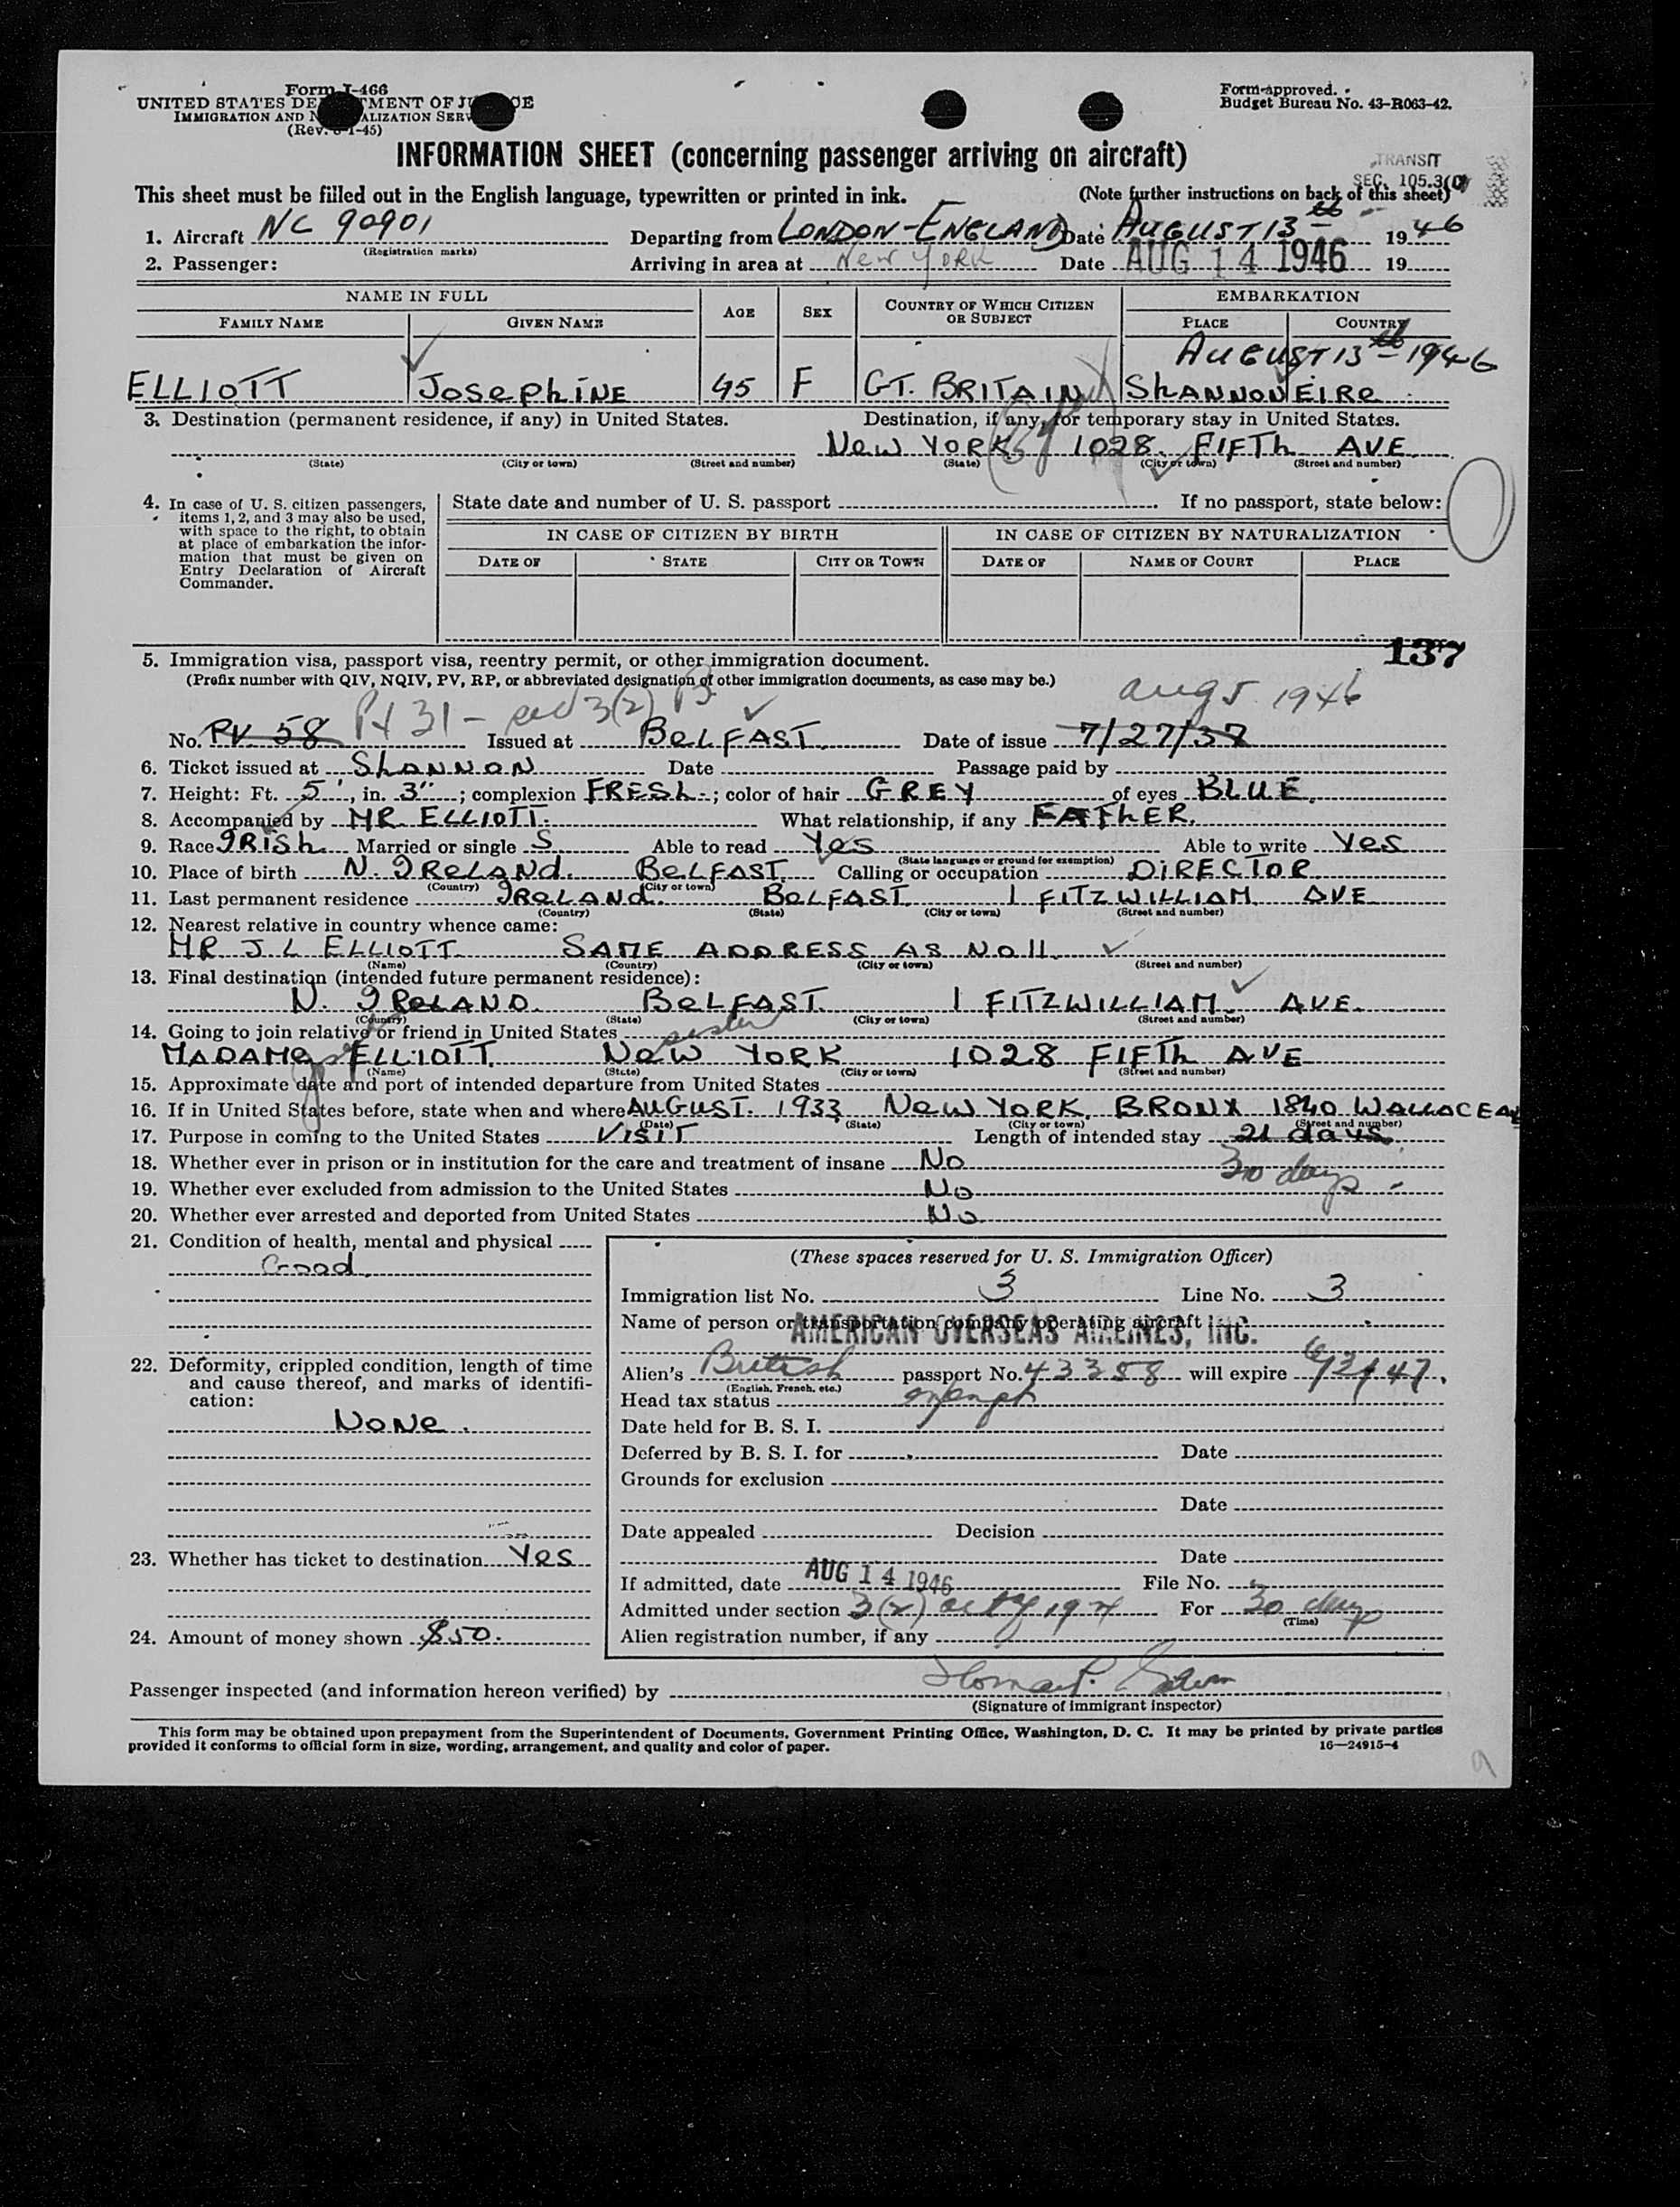 Form I-466
UNITED STATES DE TMENT OF JU CE
IMMIGRATION AND N ALIZATION SERV
(Rev. 6-1-45)
Form approved.
Budget Bureau No. 43-R063-42.
INFORMATION SHEET (concerning passenger arriving on aircraft)
TRANSIT
SEC. 105.3(
This sheet must be filled out in the English language, typewritten or printed in ink. (Note further instructions on back of this sheet)
1. Aircraft NC 90901 Departing from LONDON-ENGLAND Date AUGUST 13th 1946
(Registration marks)
2. Passenger: Arriving in area at New York Date AUG 14 1946 19
NAME IN FULL AGE SEX COUNTRY OF WHICH CITIZEN OR SUBJECT EMBARKATION
FAMILY NAME GIVEN NAME PLACE COUNTRY
AUGUST 13th 1946
ELLIOTT JosephiNE 45 F GT. BRITAIN ShANNON EIRe
3. Destination (permanent residence, if any) in United States. Destination, if any, for temporary stay in United States.
New YORK 1028 FIFTh AVE
(State) (City or town) (Street and number) (State) (City or town) (Street and number)
4. In case of U. S. citizen passengers, items 1, 2, and 3 may also be used, with space to the right, to obtain at place of embarkation the information that must be given on Entry Declaration of Aircraft Commander.
State date and number of U. S. passport If no passport, state below:
IN CASE OF CITIZEN BY BIRTH IN CASE OF CITIZEN BY NATURALIZATION
DATE OF STATE CITY OR TOWN DATE OF NAME OF COURT PLACE
137
5. Immigration visa, passport visa, reentry permit, or other immigration document.
(Prefix number with QIV, NQIV, PV, RP, or abbreviated designation of other immigration documents, as case may be.)
PV 31 - 3(2) Aug 5 1946
No. PV. 58 Issued at BeLFAST Date of issue 7/27/37
6. Ticket issued at ShANNON Date Passage paid by
7. Height: Ft. 5', in. 3"; complexion FRESh; color of hair GREY of eyes BLUE.
8. Accompanied by MR ELLIOTT. What relationship, if any FATHER.
9. Race IRish Married or single S Able to read Yes Able to write Yes
(State language or ground for exemption)
10. Place of birth N. IReLAND. BeLFAST. Calling or occupation DiRECTOR
(Country) (City or town)
11. Last permanent residence IReLAND. BeLFAST. 1 FITZWILLIAM AVE
(Country) (State) (City or town) (Street and number)
12. Nearest relative in country whence came:
MR J L ELLIOTT SAME ADDRESS AS NO 11.
(Name) (Country) (City or town) (Street and number)
13. Final destination (intended future permanent residence):
N. IReLAND. BeLFAST. 1 FITZWILLIAM. AVE.
(Country) (State) (City or town) (Street and number)
14. Going to join relative or friend in United States sister
MADAMe ELLIOTT. New YORK 1028 FIFTh AVE
(Name) (State) (City or town) (Street and number)
15. Approximate date and port of intended departure from United States
16. If in United States before, state when and where AUGUST. 1933 New YORK. BRONX 1840 WALLACE AVE
(Date) (State) (City or town) (Street and number)
17. Purpose in coming to the United States VISIT Length of intended stay 21 days
18. Whether ever in prison or in institution for the care and treatment of insane No 30 days
19. Whether ever excluded from admission to the United States No
20. Whether ever arrested and deported from United States No
21. Condition of health, mental and physical
Good.
(These spaces reserved for U. S. Immigration Officer)
Immigration list No. 3 Line No. 3
Name of person or transportation company operating aircraft
AMERICAN OVERSEAS AIRLINES, INC.
22. Deformity, crippled condition, length of time and cause thereof, and marks of identification:
NoNe.
Alien's British passport No. 43358 will expire 6/2/47.
(English, French, etc.)
Head tax status exempt
Date held for B. S. I.
Deferred by B. S. I. for Date
Grounds for exclusion
Date
Date appealed Decision
Date
23. Whether has ticket to destination Yes
If admitted, date AUG 14 1946 File No.
Admitted under section 3(2) act of 1924 For 30 days
(Time)
24. Amount of money shown $50.
Alien registration number, if any
Passenger inspected (and information hereon verified) by
(Signature of immigrant inspector)
This form may be obtained upon prepayment from the Superintendent of Documents, Government Printing Office, Washington, D. C. It may be printed by private parties
provided it conforms to official form in size, wording, arrangement, and quality and color of paper. 16—24915-4
9